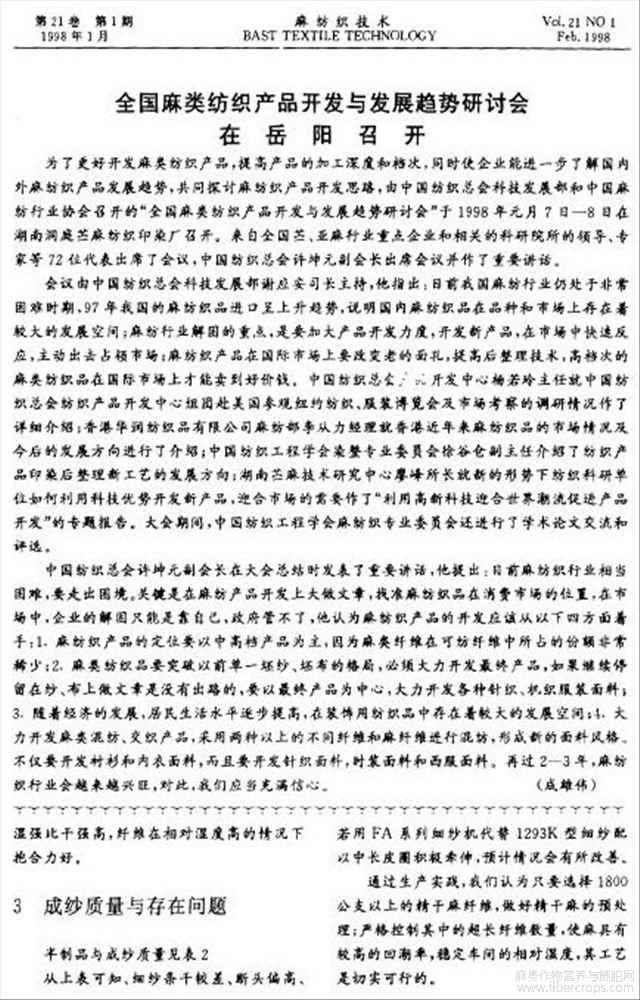 第21卷 第1期
1998年1月
麻纺织技术
BAST TEXTILE TECHNOLOGY
Vol. 21 NO 1
Feb. 1998
全国麻类纺织产品开发与发展趋势研讨会
在岳阳召开
为了更好开发麻类纺织产品,提高产品的加工深度和档次,同时使企业能进一步了解国内
外麻纺织产品发展趋势,共同探讨麻纺织产品开发思路,由中国纺织总会科技发展部和中国麻
纺行业协会召开的“全国麻类纺织产品开发与发展趋势研讨会”于1998年元月7日—8日在
湖南洞庭苎麻纺织印染厂召开。来自全国苎、亚麻行业重点企业和相关的科研院所的领导、专
家等72位代表出席了会议,中国纺织总会许坤元副会长出席会议并作了重要讲话。
会议由中国纺织总会科技发展部谢应安司长主持,他指出:目前我国麻纺行业仍处于非常
困难时期,97年我国的麻纺织品进口呈上升趋势,说明国内麻纺织品在品种和市场上存在着
较大的发展空间;麻纺行业解困的重点,是要加大产品开发力度,开发新产品,在市场中快速反
应,主动出去占领市场;麻纺织产品在国际市场上要改变老的面孔,提高后整理技术,高档次的
麻类纺织品在国际市场上才能卖到好价钱。中国纺织总会 开发中心杨若玲主任就中国纺
织总会纺织产品开发中心组团赴美国参观纽约纺织、服装博览会及市场考察的调研情况作了
详细介绍;香港华润纺织品有限公司麻纺部李从力经理就香港近年来麻纺织品的市场情况及
今后的发展方向进行了介绍;中国纺织工程学会染整专业委员会徐谷仓副主任介绍了纺织产
品印染后整理新工艺的发展方向;湖南苎麻技术研究中心廖峰所长就新的形势下纺织科研单
位如何利用科技优势开发新产品,迎合市场的需要作了“利用高新科技迎合世界潮流促进产品
开发”的专题报告。大会期间,中国纺织工程学会麻纺织专业委员会还进行了学术论文交流和
评选。
中国纺织总会许坤元副会长在大会总结时发表了重要讲话,他提出:目前麻纺织行业相当
困难,要走出困境。关键是在麻纺产品开发上大做文章,找准麻纺织品在消费市场的位置,在市
场中,企业的解困只能是靠自己,政府管不了,他认为麻纺织产品的开发应该从以下四方面着
手:1. 麻纺织产品的定位要以中高档产品为主,因为麻类纤维在可纺纤维中所占的份额非常
稀少;2. 麻类纺织品要突破以前单一坯纱、坯布的格局,必须大力开发最终产品,如果继续停
留在纱、布上做文章是没有出路的,要以最终产品为中心,大力开发各种针织、机织服装面料;
3. 随着经济的发展,居民生活水平逐步提高,在装饰用纺织品中存在着较大的发展空间;4. 大
力开发麻类混纺、交织产品,采用两种以上的不同纤维和麻纤维进行混纺,形成新的面料风格。
不仅要开发衬衫和内衣面料,而且要开发针织面料,时装面料和西服面料。再过2—3年,麻纺
织行业会越来越兴旺,对此,我们应当充满信心。 (成雄伟)
湿强比干强高,纤维在相对湿度高的情况下
抱合力好。
3 成纱质量与存在问题
半制品与成纱质量见表2
从上表可知、细纱条干较差、断头偏高、
若用FA系列细纱机代替1293K型细纱配
以中长皮圈积极牵伸,预计情况会有所改善。
通过生产实践,我们认为只要选择1800
公支以上的精干麻纤维,做好精干麻的预处
理;严格控制其中的超长纤维数量,使麻具有
较高的回潮率,稳定车间的相对湿度,其工艺
是切实可行的。
麻类作物营养与施肥网
www.fibercrops.com